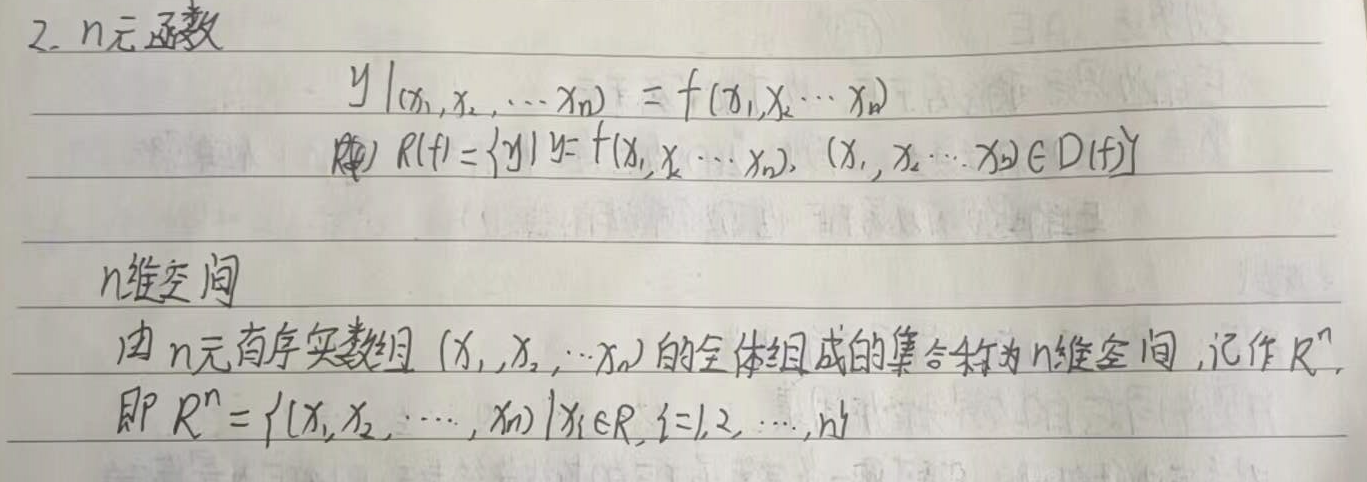 2. n元函数
y|(x₁,x₂,…xₙ) = f(x₁,x₂…xₙ)
R(f)={y|y=f(x₁,x₂…xₙ),(x₁,x₂…xₙ)∈D(f)}
n维空间
由n元有序实数组(x₁,x₂,…xₙ)的全体组成的集合称为n维空间,记作Rⁿ,
即Rⁿ={(x₁,x₂,…,xₙ)|xᵢ∈R,i=1,2,…,n}